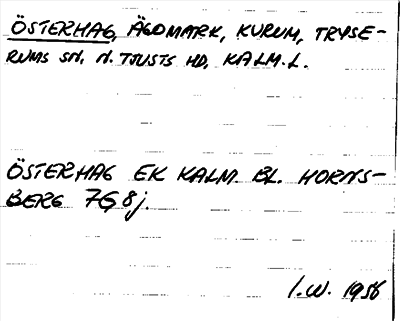 ÖSTERHAG, ÄGOMARK, KURUM, TRYSE-
RUMS SN, N. TJUSTS HD, KALM. L.
ÖSTERHAG EK KALM. BL. HORNS-
BERG 7G, 8j.
I.W. 1956